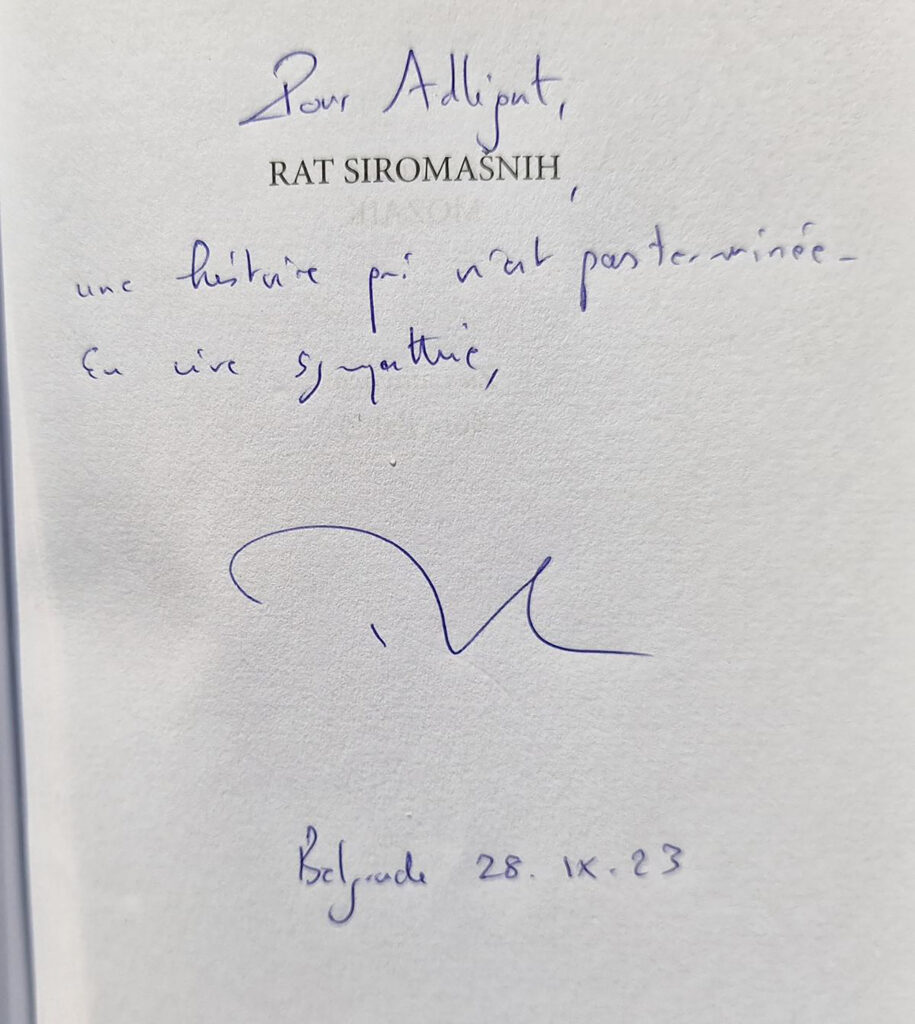 Pour Adligat,
RAT SIROMAŠNIH,
une histoire qui n'est pas terminée -
En vive sympathie,
Belgrade 28. IX. 23